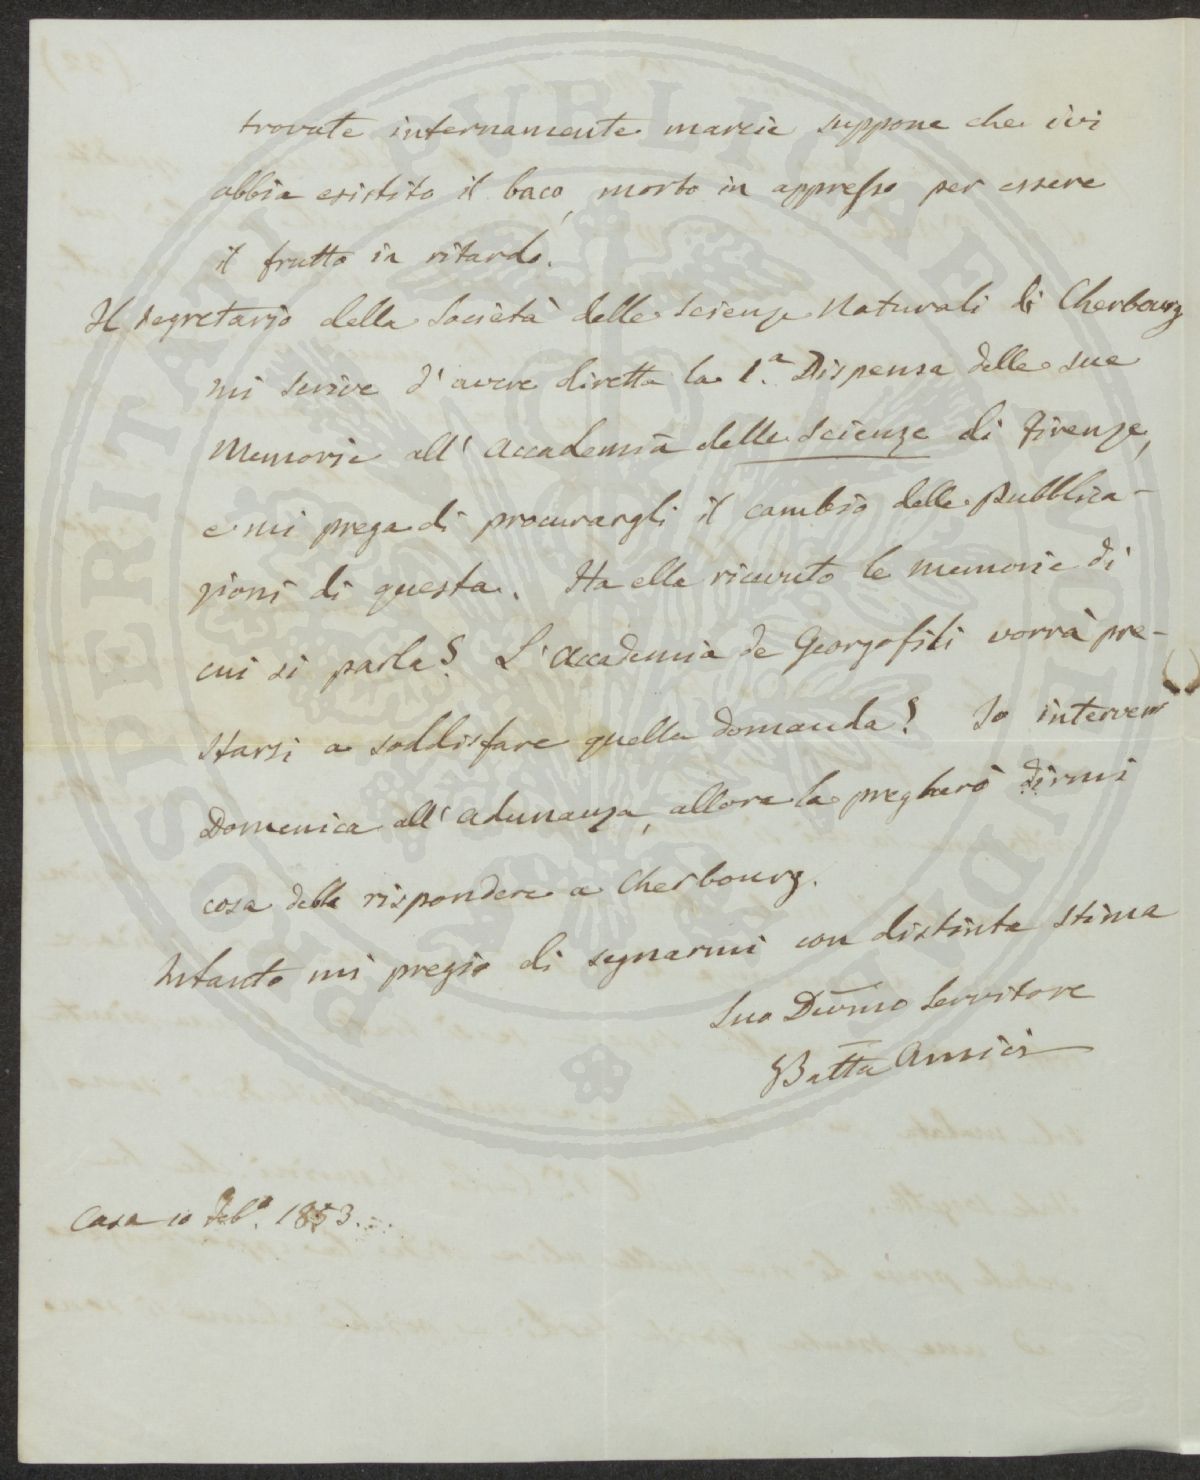 trovate internamente marcie suppone che ivi
abbia esistito il baco, morto in appresso per essere
il frutto in ritardo.
Il Segretario della Società delle Scienze Naturali di Cherbourg
mi scrive d'avere diretta la 1.a Dispensa delle sue
Memorie all'Accademia delle Scienze di Firenze,
e mi prega di procurargli il cambio delle Pubblica-
zioni di questa. Ha ella ricevuto le memorie di
cui si parla? L'Accademia de Georgofili vorrà pre-
starsi a soddisfare quella domanda? Io interverrò
Domenica all'adunanza, allora la pregherò dirmi
cosa debba rispondere a Cherbourg.
Intanto mi pregio di segnarmi con distinta stima
Suo Devmo Servitore
GBatta Amici
Casa 10 Feb.o 1853.
PROSPERITATI PVBLICAE AVGENDAE